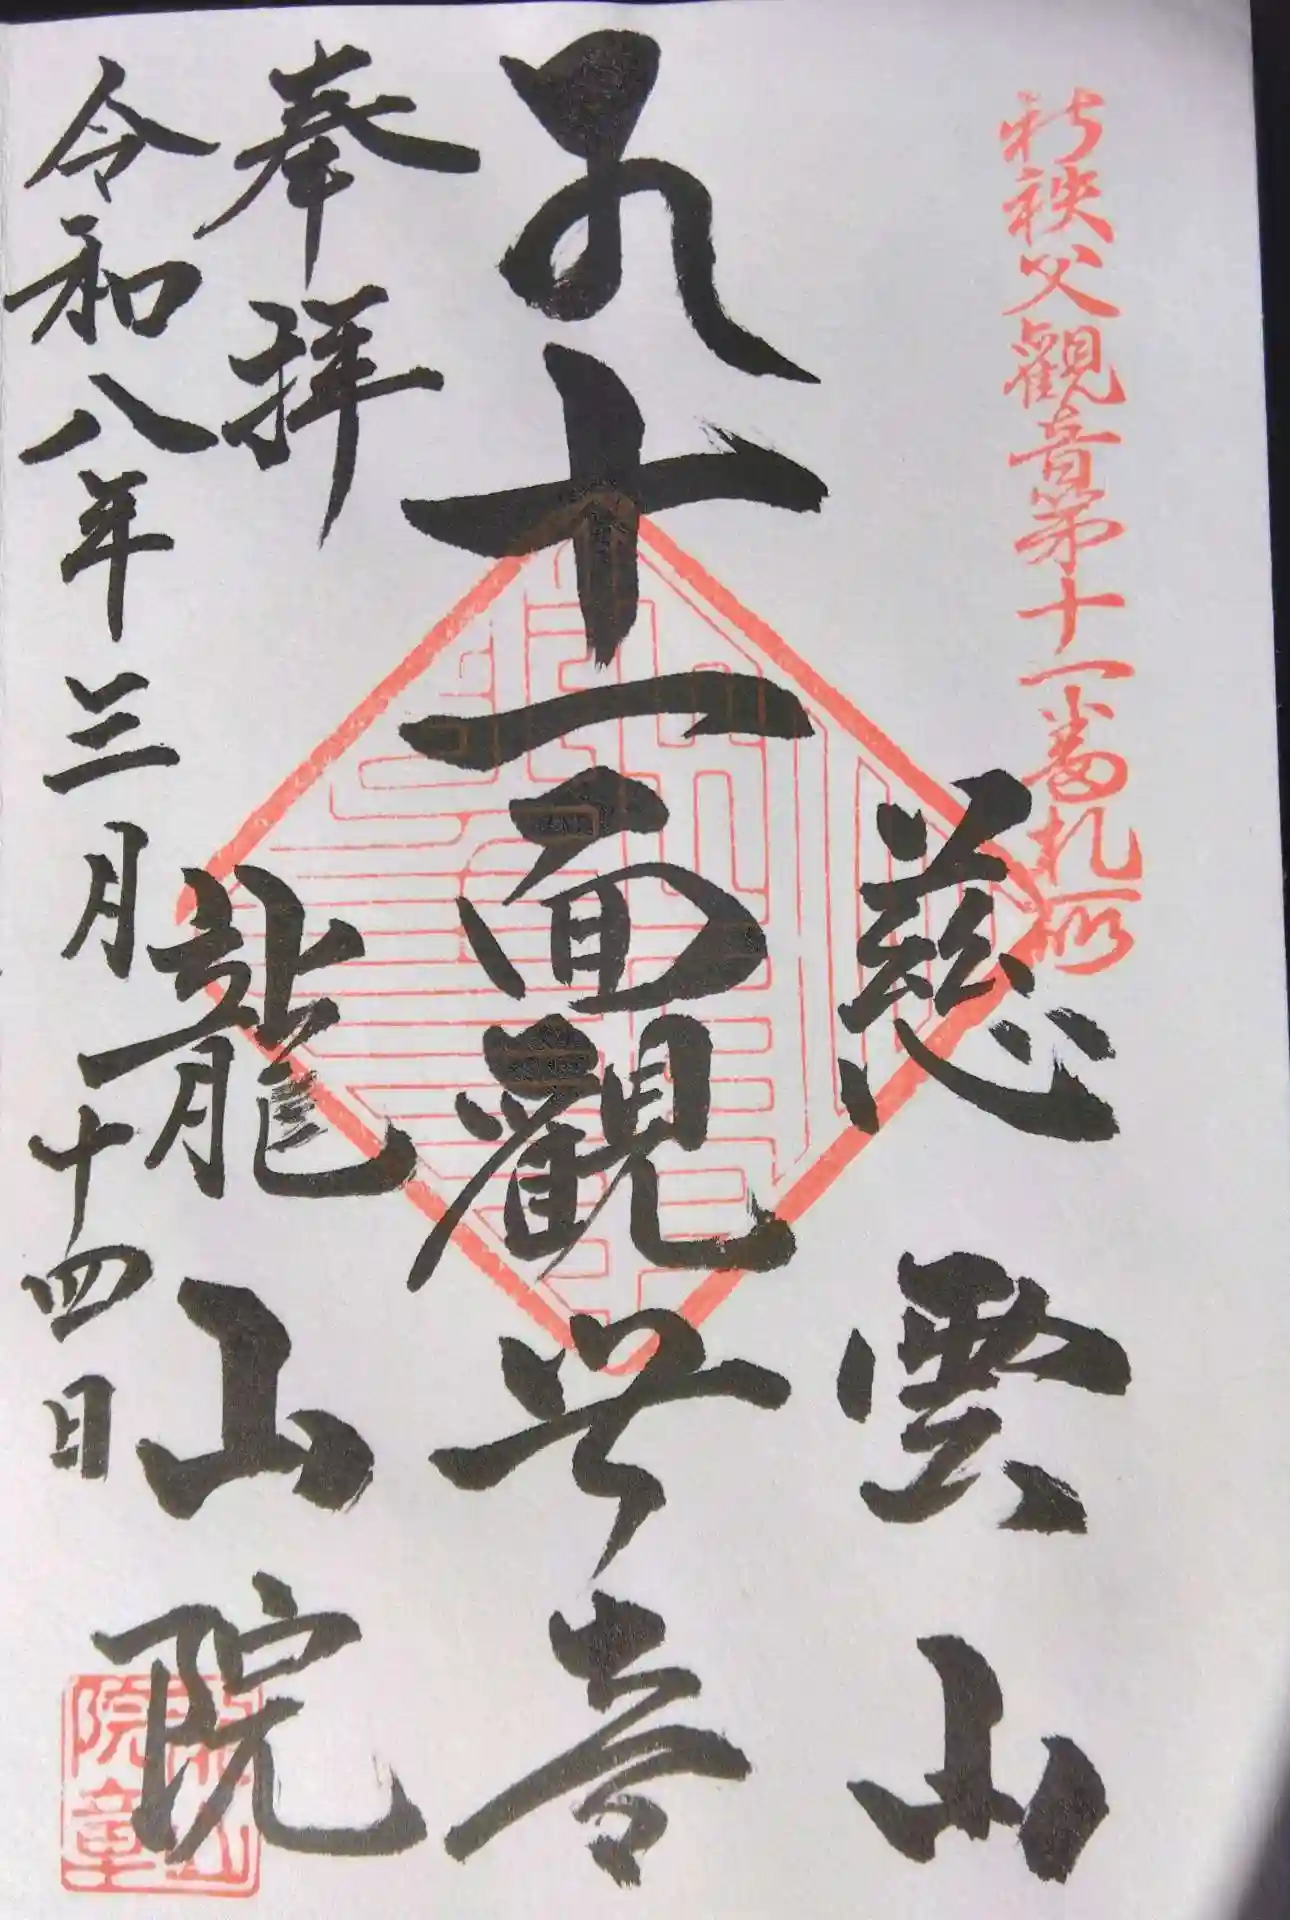 新秩父觀音第十一番札所
慈雲山
十一面觀世音
奉拝
龍山院
令和八年三月十四日
龍山
院章